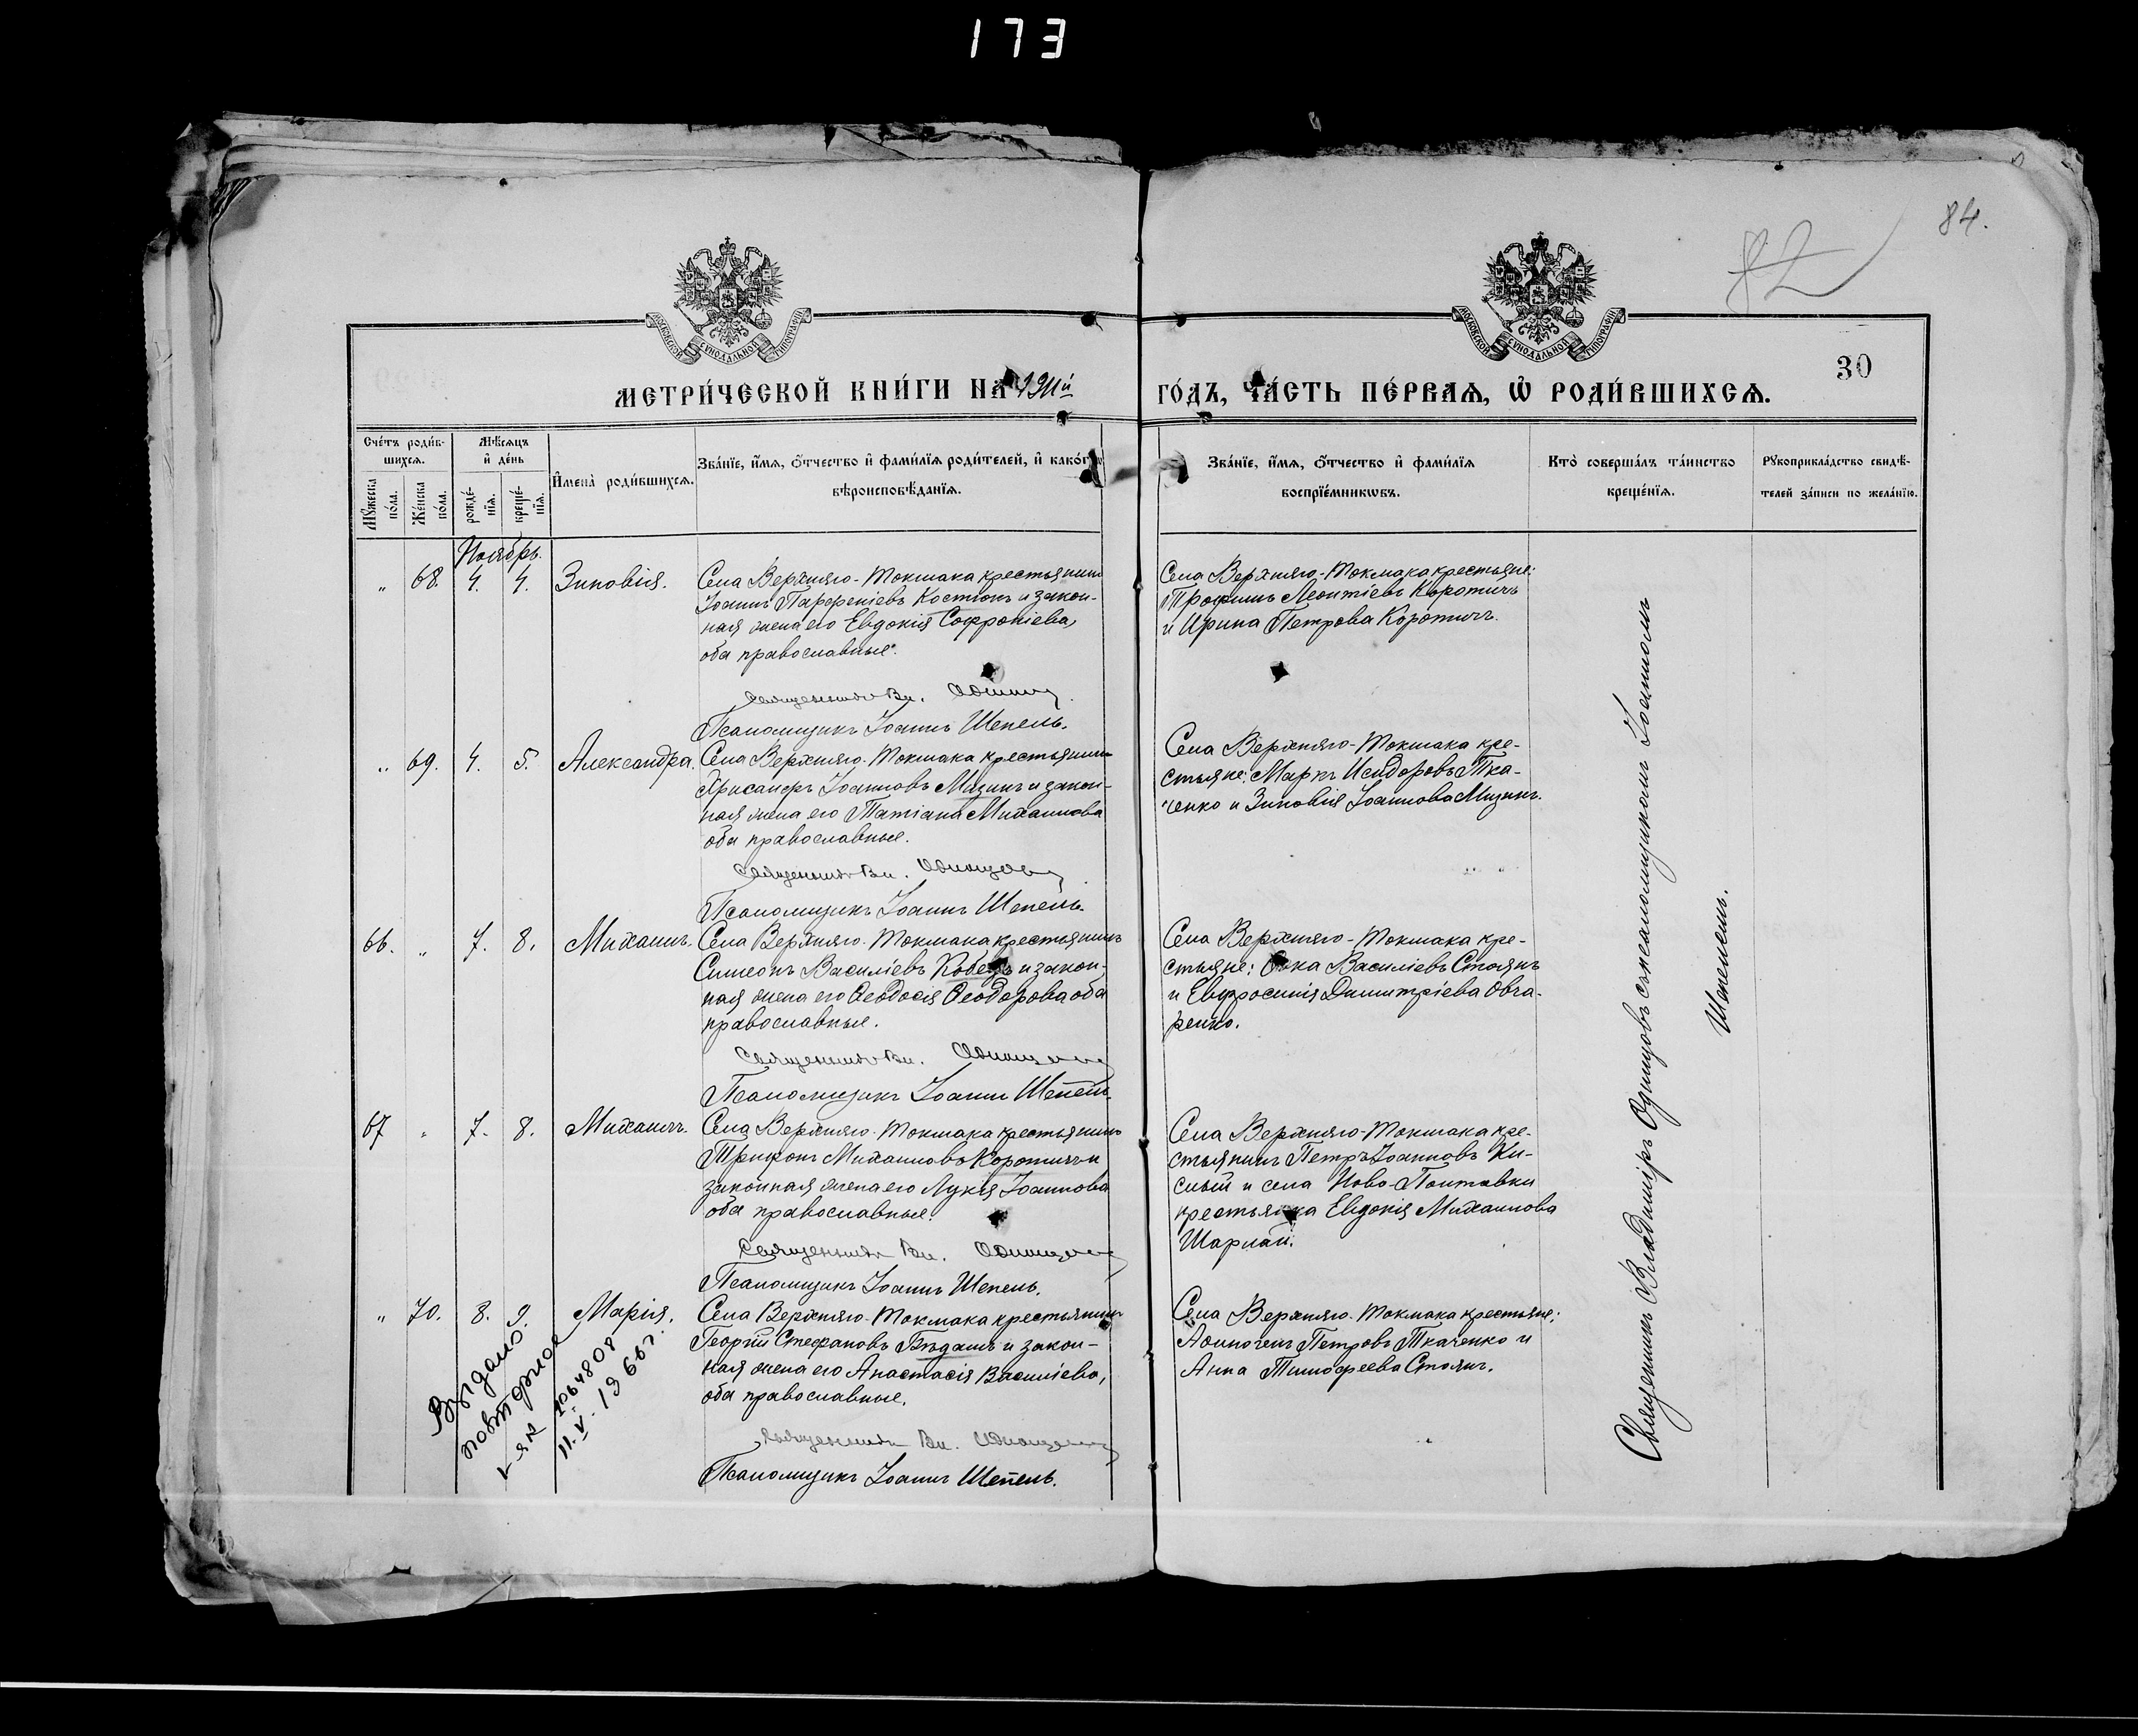 173
84.
82
30
МОСКОВСКОЙ СѴНОДАЛЬНОЙ ТИПОГРАФІИ
МОСКОВСКОЙ СѴНОДАЛЬНОЙ ТИПОГРАФІИ
МЕТРИ́ЧЕСКОЙ КНИ́ГИ НА 1911й ГО́ДЪ, ЧА́СТЬ ПЕ́РВАѦ, Ѡ҆ РОДИ́ВШИХСѦ.
Сче́тъ роди́в-
шихсѧ.
Мꙋ́жеска по́ла.
Же́нска по́ла.
Мѣ́сѧцъ
и҆ де́нь
рожде́-
нїѧ.
креще́-
нїѧ.
И҆мена̀ роди́вшихсѧ.
Зва́нїе, и҆́мѧ, ѻ҆́тчество и҆ фами́лїѧ роди́телей, и҆ како́гѡ
вѣроисповѣ́данїѧ.
Зва́нїе, и҆́мѧ, ѻ҆́тчество и҆ фами́лїѧ
воспрїе́мникѡвъ.
Кто̀ соверша́лъ та́инство
креще́нїѧ.
Рꙋкоприкла́дство свидѣ́-
телей за́писи по жела́нїю.
Ноябрь.
„ 68. 4. 4. Зиновія. Села Верхняго-Токмака крестьянинъ
Іоаннъ Парѳеніевъ Костюкъ и закон-
ная жена его Евдокія Софроніева,
оба православные.
Священникъ Вл. Одинцовъ
Псаломщикъ Іоаннъ Шепель.
Села Верхняго-Токмака крестьяне:
Трофимъ Леонтіевъ Коротичъ
и Ирина Петрова Коротичъ.
„ 69. 4. 5. Александра. Села Верхняго-Токмака крестьянинъ
Хрисанѳъ Іоанновъ Мизинъ и закон-
ная жена его Татіана Михаилова
оба православные.
Священникъ Вл. Одинцовъ
Псаломщикъ Іоаннъ Шепель.
Села Верхняго-Токмака кре-
стьяне: Маркъ Исидоровъ Тка-
ченко и Зиновія Іоаннова Мизинъ.
66. „ 7. 8. Михаилъ. Села Верхняго-Токмака крестьянинъ
Симеонъ Василіевъ Кобецъ и закон-
ная жена его Ѳеодосія Ѳеодорова оба
православные.
Священникъ Вл. Одинцовъ
Псаломщикъ Іоаннъ Шепель.
Села Верхняго-Токмака кре-
стьяне: Василіевъ Столяръ
и Евфросинія Димитріева Овча-
ренко.
67 „ 7. 8. Михаилъ. Села Верхняго-Токмака крестьянинъ
Трифонъ Михаиловъ Коротичъ и
законная жена его Лукія Іоаннова
оба православные.
Священникъ Вл. Одинцовъ
Псаломщикъ Іоаннъ Шепель.
Села Верхняго-Токмака кре-
стьянинъ Петръ Іоанновъ Ки-
слый и села Ново-Полтавки
крестьянка Евдокія Михаилова
Шарлай.
„ 70. 8. 9. Марія. Села Верхняго-Токмака крестьянинъ
Георгій Стефановъ Бѣдашъ и закон-
ная жена его Анастасія Василіева,
оба православные.
Священникъ Вл. Одинцовъ
Псаломщикъ Іоаннъ Шепель.
Села Верхняго-Токмака крестьяне:
Аѳиногенъ Петровъ Ткаченко и
Анна Тимоѳеева Столяръ.
Выдано
повторное
11.V.1966г.
Священникъ Владиміръ Одинцовъ съ псаломщикомъ Іоанномъ
Шепелемъ.